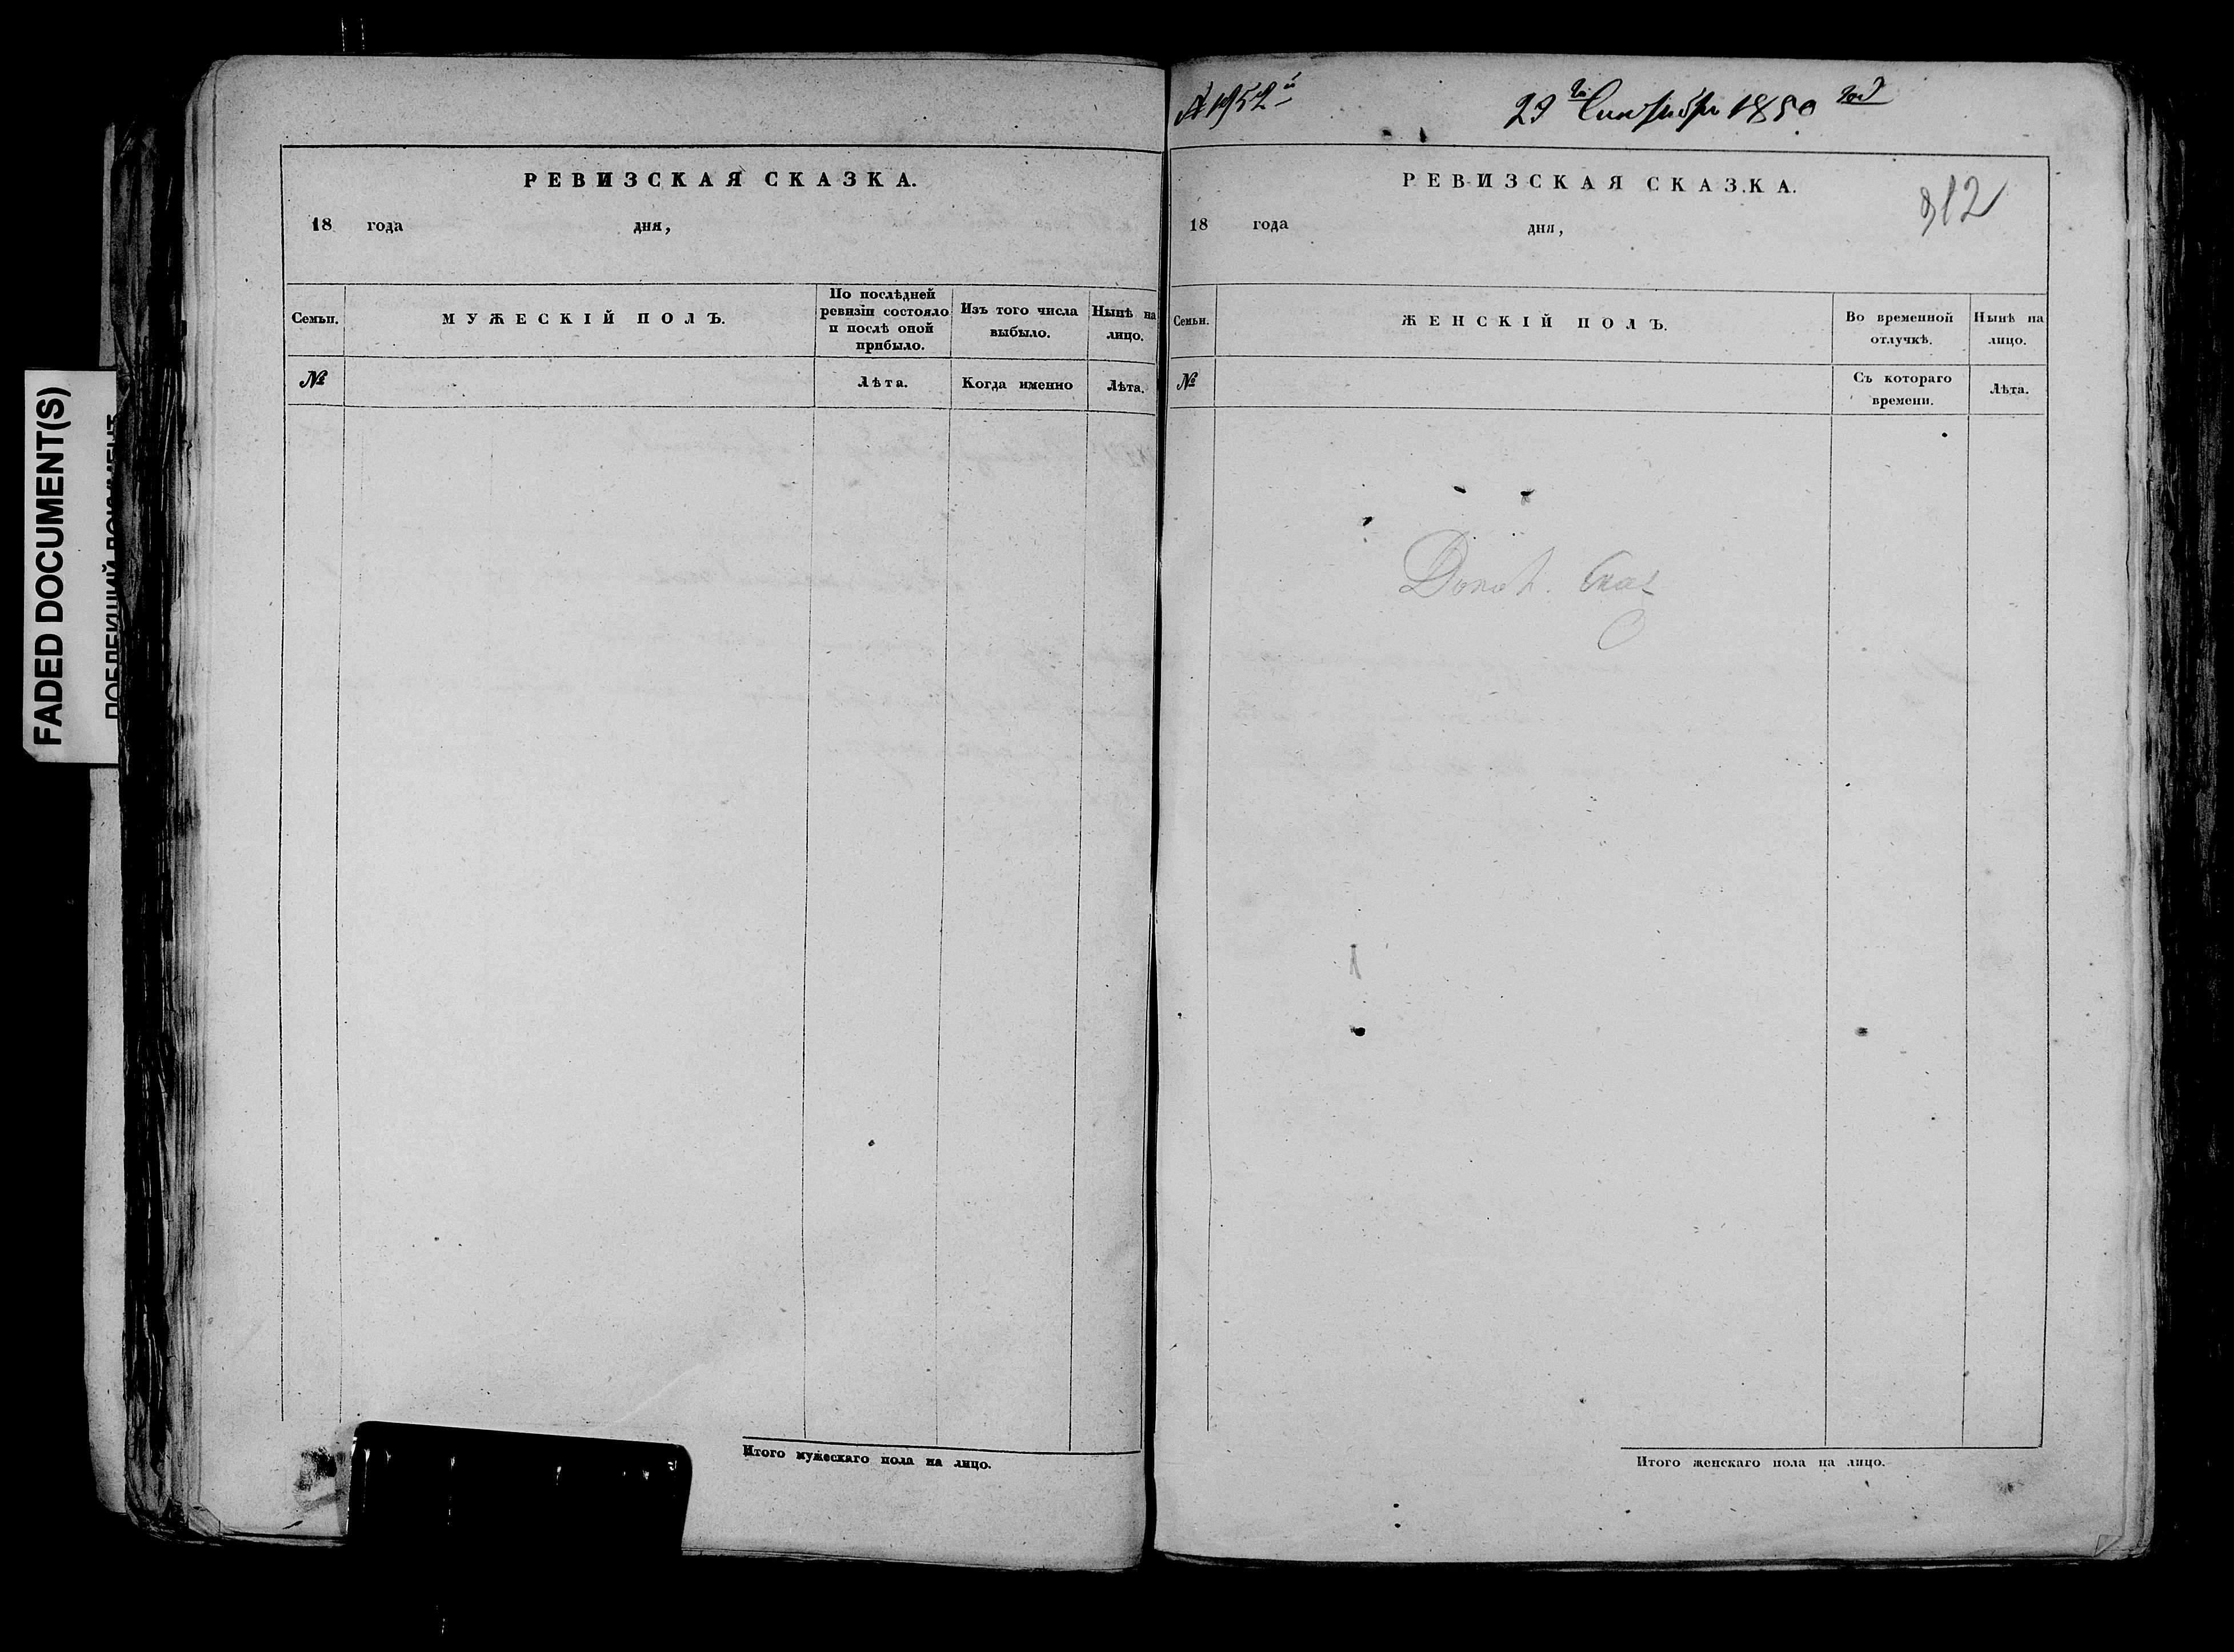 FADED DOCUMENT(S)
РЕВИЗСКАЯ СКАЗКА.
18 года дня,
Семьи.
МУЖЕСКІЙ ПОЛЪ.
По послѣдней
ревизіи состояло
и послѣ оной
прибыло.
Изъ того числа
выбыло.
Нынѣ на
лицо.
№
Лѣта.
Когда именно
Лѣта.
Итого мужескаго пола на лицо.
23 1850
РЕВИЗСКАЯ СКАЗКА.
312
18 года дня,
Семьи.
ЖЕНСКІЙ ПОЛЪ.
Во временной
отлучкѣ.
Нынѣ на
лицо.
№
Съ котораго
времени.
Лѣта.
Итого женскаго пола на лицо.